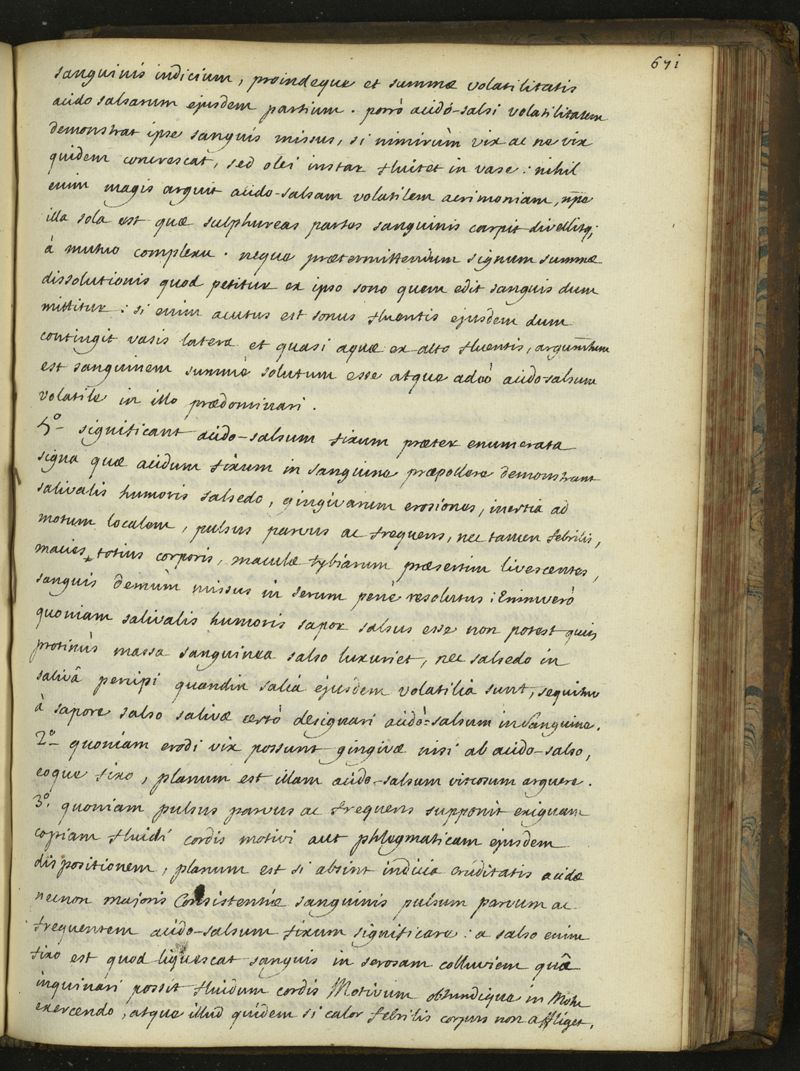 671
sanguinis indicium, proindeque et summæ volatilitatis
acido salsarum ejusdem partium. porrò acidó-salsi volatilitatem
demonstrat ipse sanguis missus, si nimirùm vix ac ne vix
quidem concrescat, sed olei instar fluitet in vase: nihil
enim magis arguit acido-salsam volatilem acrimoniam, npe
illa sola est quæ sulphureas partes sanguinis carpit divellitq;
à mutuo complexu. neque prætermittendum signum summæ
dissolutionis quod petitur ex ipso sono quem edit sanguis dum
mittitur: si enim acutus est sonus fluentis ejusdem dum
contingit vasis latera et quasi aquæ ex alto fluentis, argumentum
est sanguinem summè solutum esse atque adeò acido salsum
volatile in illo prædominari.
5º significant acido-salsum fixum præter enumerata
signa quæ acidum fixum in sanguine præpollere demonstrant
salivalis humoris salsedo, gingivarum erosiones, inertia ad
motum localem, pulsus parvus ac frequens, nec tamen febrilis,
macies totius corporis, maculæ tybiarum præsertim livescentes,
sanguis demùm missus in serum penè resolutus: Enimverò
quoniam salivalis humoris sapor salsus esse non potest quin
protinùs massa sanguinea salso luxuriet, nec salsedo in
salivâ percipi quandiu salia ejusdem volatilia sunt, sequitur
à sapore salso salivæ certò designari acidò-salsum in Sanguine.
2º quoniam erodi vix possunt gingivæ nisi ab acido-salso,
eoque fixo, planum est illam acido-salsum viscosum arguere.
3º. quoniam pulsus parvus ac frequens supponit exiguam
copiam fluidi cordis motivi aut phlegmaticam ejusdem
dispositionem, planum est si absint indicia cruditatis acidæ
necnon majoris Consistentiæ sanguinis pulsum parvum ac
frequentem acido-salsum fixum significare: a salso enim
fixo est quod liquescat sanguis in serosam colluviem quâ
inquinari possit fluidum cordis Motivum obtundique in Motu
exercendo, atque illud quidem si calor febrilis corpus non affliget.